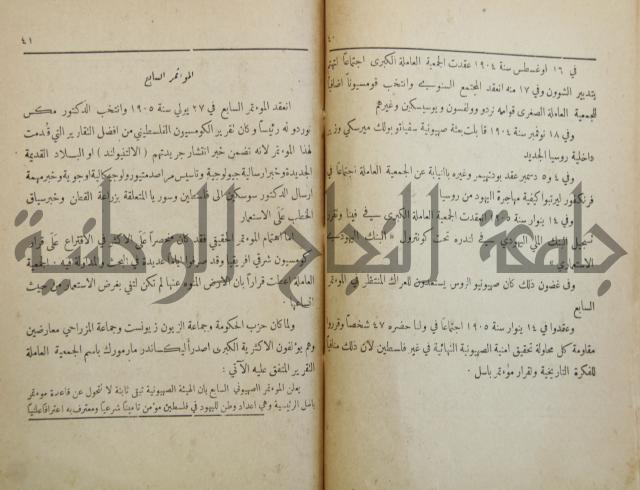 ٤٠
في ١٦ اوغسطس سنة ١٩٠٤ عقدت الجمعية العاملة الكبرى اجتماعاً لتهتم
بتدبير الشؤون وفي ١٧ منه انعقد المجتمع السنوي وانتخب قومسيوناً اضافياً
للجمعية العاملة الصغرى قوامه نردو وولفسون و يوسيسكين وغيرهم
وفي ١٨ نوفمبر سنة ١٩٠٤ قابلت بعثة صهيونية سفياتو بولك ميرسكي وزير
داخلية روسيا الجديد
وفي ٤ و٥ دسمبر عقد بودنهيمر وغيره بالنيابة عن الجمعية العاملة اجتماعاً في
فرنكفور ليرتبوا كيفية مهاجرة اليهود من روسيا
وفي ١٤ ينوار سنة ١٩٠٥ انعقدت الجمعية العاملة الكبرى في فينا وتقرر
تسجيل البنك الملي اليهودي في لندره تحت كونترول « البنك اليهودي
الاستعماري
وفي غضون ذلك كان صهيونيو الروس يستعدون للعراك المنتظر في المؤتمر
السابع
وعقدوا في ١٤ ينوار سنة ١٩٠٥ اجتماعاً في ولنا حضره ٤٧ شخصاً وقرروا
مقاومة كل محاولة تحقيق امنية الصهيونية النهائية في غير فلسطين لان ذلك منافياً
للفكرة التاريخية ولقرار مؤتمر باسل .
٤١
المؤتمر السابع
انعقد المؤتمر السابع في ٢٧ يولي سنة ١٩٠٥ وانتخب الدكتور مكس
نوردو له رئيساً وكان تقرير الكومسيون الفلسطيني من افضل التقارير التي قدمت
لهذا المؤتمر لانه تضمن خبر انتشار جريدتهم ( الالتنيولند ) او البلاد القديمة
الجديدة وخبر ارسالية جيولوجية وتأسيس مراصد متيورولوجيكالية اوجوية وخبر مهمة
ارسال الدكتور سوسكين الى فلسطين وسوريا المتعلقة بزراعة القطن وخبر سياق
الخطب على الاستعمار
اما اهتمام المؤتمر الحقيقي فقد كان منحصراً على الاكثر في الاقتراع على قرار
كومسيون شرقي افريقيا وقد صرفوا اياماً عديدة في البحث والمداولة فيه . الجمعة
العاملة اعطت قراراً بان الارض المنوه عنها لم تكن لتفي بغرض الاستعمار من حيث
اتساعها .
ولما كان حزب الحكومة وجماعة الزيون زيونست وجماعة المزراحي معارضين
وهم يؤلفون الاكثرية الكبرى اصدر اليكساندر مارمورك باسم الجمعية العاملة
التقرير المتفق عليه الآتي :
يعلن المؤتمر الصهيوني السابع بان الهيئة الصهيونية تبقى ثابتة لا تتحول عن قاعدة مؤتمر
باسل الرئيسية وهي اعداد وطن لليهود في فلسطين مؤمن تأميناً شرعياً ومعترف به اعترافاً علنياً
جامعة النجاح الوطنية